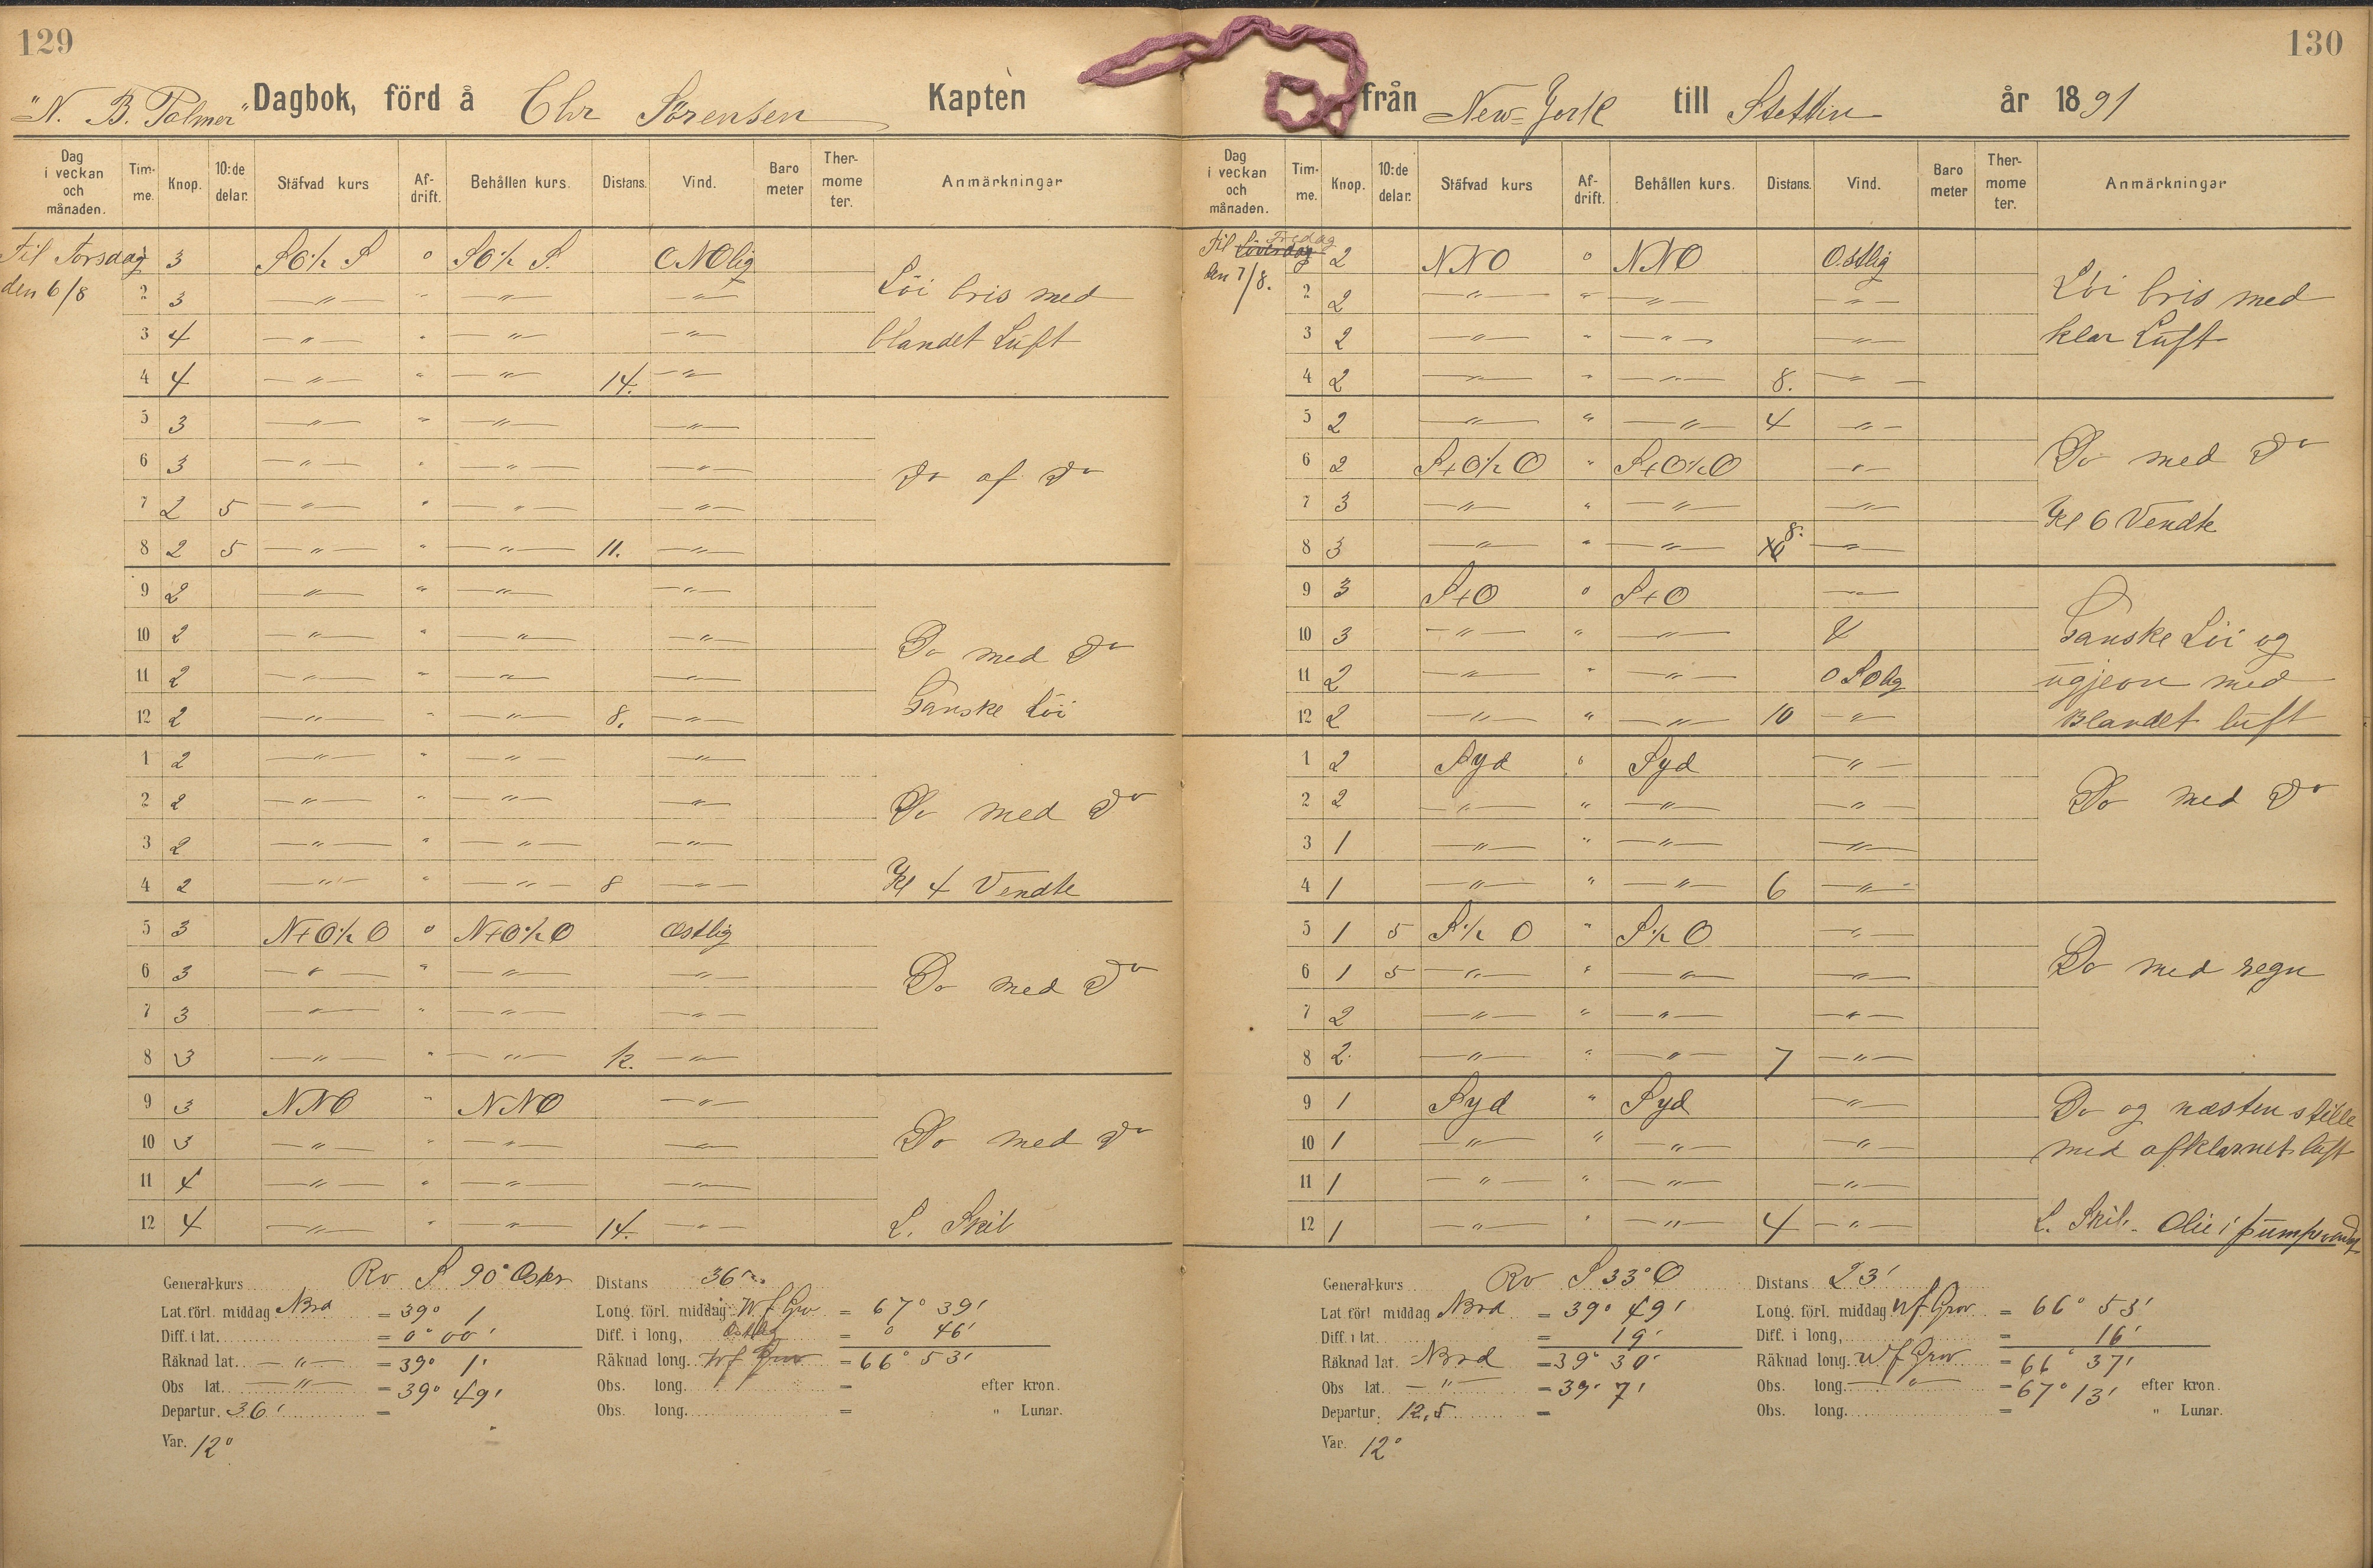 129
"N. B. Palmer" Dagbok, förd å Chr Sörensen Kapten
Dag i veckan och månaden. Tim-me. Knop. 10:de delar. Stäfvad kurs Af-drift. Behållen kurs. Distans. Vind. Baro meter Ther-mome ter. Anmärkningar
Til Torsdag 3 SO½ S o SO½ S. ONOlig
den 6/8 2 3 — " — " — " — — " — Löi bris med
3 4 — " — " — " — — " — blandet Luft
4 4 — " — " — " — 14. — " —
5 3 — " — " — " — — " —
6 3 — " — " — " — — " — do af do
7 2 5 — " — " — " — — " —
8 2 5 — " — " — " — 11. — " —
9 2 — " — " — " — — " —
10 2 — " — " — " — — " — Do med do
11 2 — " — " — " — — " —
12 2 — " — " — " — 8. — " — Ganske Löi
1 2 — " — " — " — — " —
2 2 — " — " — " — — " — Do med do
3 2 — " — " — " — — " —
4 2 — " — " — " — 8 — " — Kl 4 Vendte
5 3 N+O½ O o N+O½ O Østlig
6 3 — " — " — " — — " — Do med do
7 3 — " — " — " — — " —
8 3 — " — " — " — 12. — " —
9 3 NNO " NNO — " —
10 3 — " — " — " — — " — Do med do
11 4 — " — " — " — — " —
12 4 — " — " — " — 14. — " — L. Skil
General-kurs Rv S 90° Øster Distans 36
Lat. förl. middag Nord = 39° 1 Long. förl. middag W f Grv = 67° 39'
Diff. i lat. = 0° 00' Diff. i long, Østlig = 0 46'
Räknad lat. — " — = 39° 1' Räknad long. W f Grv = 66° 53'
Obs lat. — " — = 39° 49' Obs. long. = efter kron.
Departur. 36' = Obs. long. = " Lunar.
Var. 12°
130
från New-York till Stettin år 1891
Dag i veckan och månaden. Tim-me. Knop. 10:de delar. Stäfvad kurs Af-drift. Behållen kurs. Distans. Vind. Baro meter Ther-mome ter. Anmärkningar
Til Fredag 2 NNO o NNO Ostlig
den 7/8. 2 2 — " — " — " — — " — Löi bris med
3 2 — " — " — " — — " — klar Luft
4 2 — " — " — " — 8. — " —
5 2 — " — " — " — 4 — " —
6 2 S+O½ O " S+O½ O — " — Do med do
7 3 — " — " — " — — " — Kl 6 Vendte
8 3 — " — " — " — 8. — " —
9 3 S+O o S+O — " —
10 3 — " — " — " — Ganske Löi og
11 2 — " — " — " — OSOlig ugjevn med
12 2 — " — " — " — 10 — " — Blandet luft
1 2 Syd o Syd — " —
2 2 — " — " — " — — " — Do med do
3 1 — " — " — " — — " —
4 1 — " — " — " — 6 — " —
5 1 5 S½ O " S½ O — " —
6 1 5 — " — " — " — — " — Do med regn
7 2 — " — " — " — — " —
8 2 — " — " — " — 7 — " —
9 1 Syd " Syd — " — Do og næsten stille
10 1 — " — " — " — — " — med afklarnet luft
11 1 — " — " — " — — " —
12 1 — " — " — " — 4 — " — L. Skil. Olie i
General-kurs Rv S 33° O Distans 23'
Lat. förl middag Nord = 39° 49' Long. förl. middag W f Grv = 66° 53'
Diff. i lat. = 19' Diff. i long, = 16'
Räknad lat. Nord = 39° 30' Räknad long. W f Grv = 66° 37'
Obs lat. — " — = 39° 7' Obs. long. — " — = 67° 13' efter kron.
Departur. 12,5 = Obs. long. = " Lunar.
Var. 12°